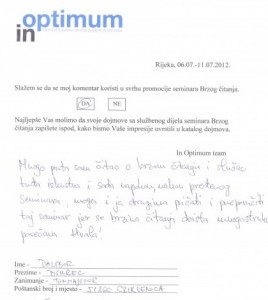 optimum
in
Rijeka, 06.07.-11.07.2012.
Slažem se da se moj komentar koristi u svrhu promocije seminara Brzog čitanja.
DA NE
Najljepše Vas molimo da svoje dojmove sa službenog dijela seminara Brzog
čitanja zapišete ispod, kako bismo Vaše impresije uvrstili u katalog dojmova.
In Optimum team
Mnogo puta sam čitao o brzom čitanju i slušao
tuđa iskustva i sada napokon, nakon prošlog
seminara, mogu i ja drugima pričati i preporučiti
taj seminar jer se brzina čitanja doista umnogostruko
povećava. Hvala!
Ime - DALIBOR
Prezime -
Zanimanje -
Poštanski broj i mjesto - CRIKVENICA